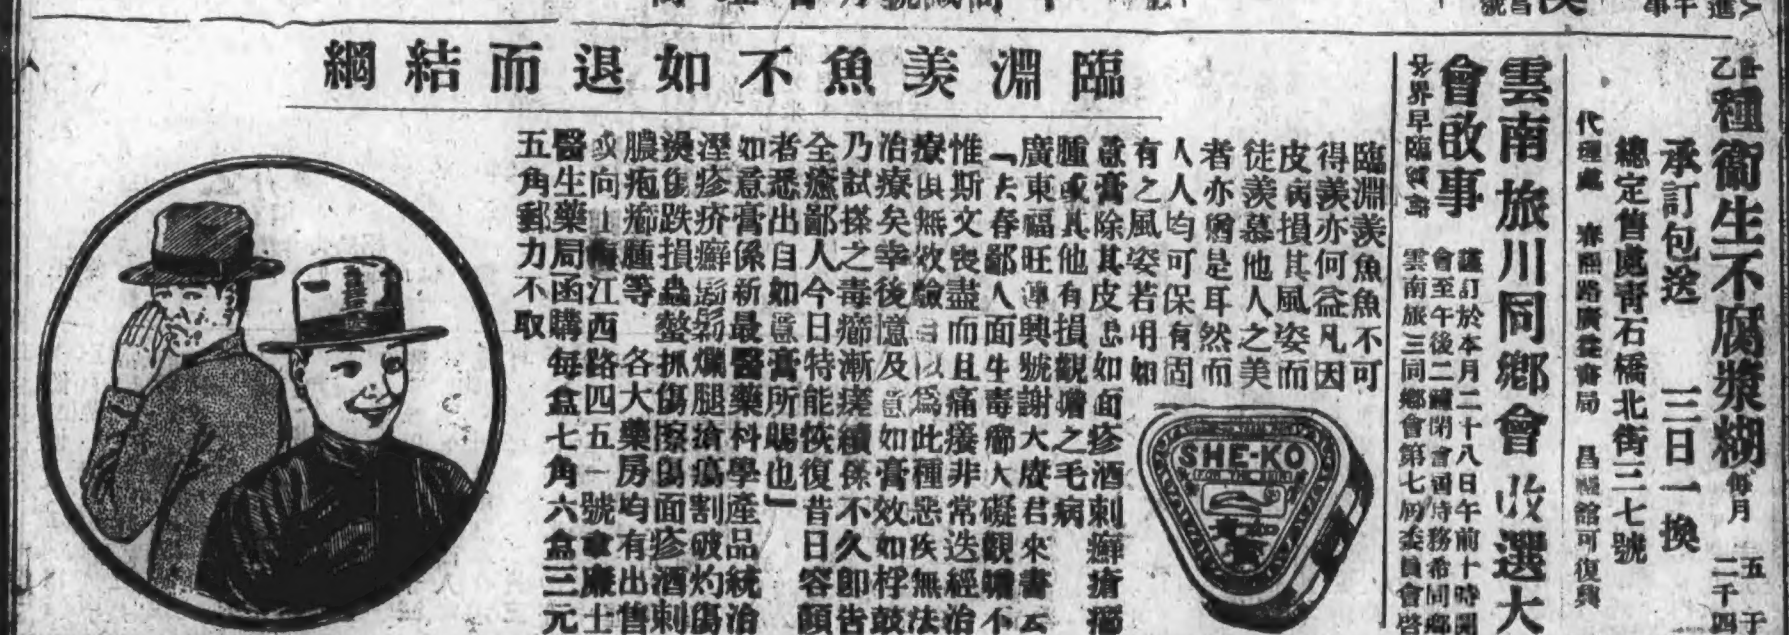 乙種衞生不腐漿糊
每月
承訂包送　三日一換
總定售處青石橋北街三七號
代理處
雲南旅川同鄉會改選大
會啟事
謹訂於本月二十八日午前十時開
會至午後二鐘閉會
臨淵羡魚不如退而結網
臨淵羡魚魚不可
得羡亦何益凡因
皮病損其風姿而
徒羡慕他人之美
者亦猶是耳然而
人人均可保有固
有之風姿若用如
意膏除其皮
如面疹酒刺癬瘡癤
腫或其他有損觀瞻之毛病
廣東福旺興號謝大廣君來書云
「去春鄙人面生毒癤大礙觀瞻不
惟斯文喪盡而且痛癢非常迭經治
療俱無效驗自以為此種惡疾無法
治療矣幸後憶及如意膏效如桴鼓
乃試搽之毒癤漸瘥續搽不久即告
全癒鄙人今日特能恢復昔日容顏
者悉出自如意膏所賜也」
如意膏係新最醫藥科學產品統治
溼疹疥癬爛腿瘡瘍割破灼傷
燙傷跌損蟲螫抓傷擦傷面疹酒刺
膿疱癤腫等　各大藥房均有出售
或向上海江西路四五一號韋廉士
醫生藥局函購每盒七角六盒三元
五角郵力不取
SHE-KO